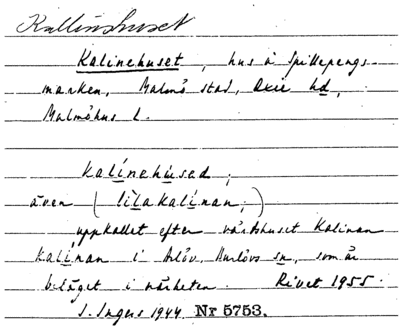 Kallinshuset
Kalinehuset, hus å Spillepengs-
marken, Malmö stad, Oxie hd,
Malmöhus l.
kalínehúsed;
även (lílakalínan;)
uppkallet efter värdshuset Kalinan
kalínan i Arlöv, Burlövs sn, som är
beläget i närheten. Rivet 1955.
I. Ingers 1944. Nr 5753.